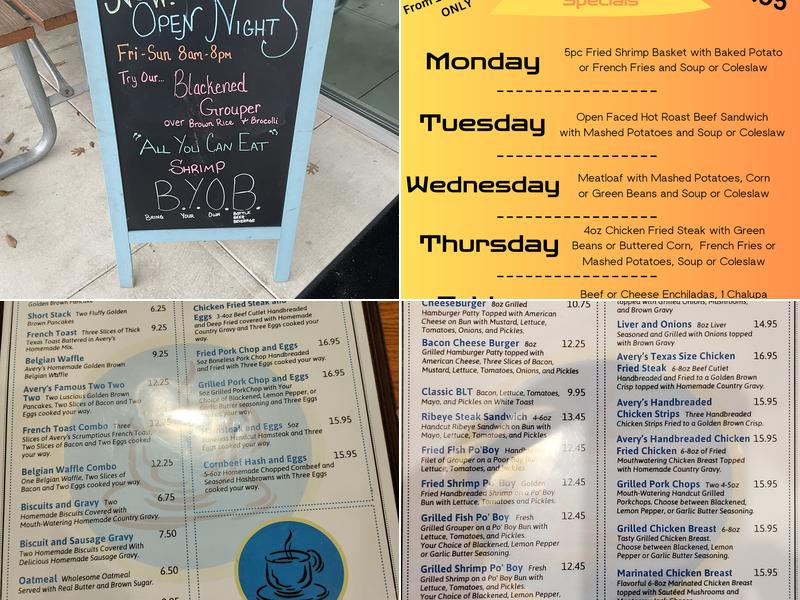 OPEN NIGHTS
Fri-Sun 8am-8pm
Try Our... Blackened
Grouper
over Brown Rice & Brocolli
"ALL YOU CAN EAT"
SHRIMP
B.Y.O.B.
BRING YOUR OWN BOTTLE
BEER
BEVERAGE
From
ONLY
Specials
Monday
5pc Fried Shrimp Basket with Baked Potato
or French Fries and Soup or Coleslaw
Tuesday
Open Faced Hot Roast Beef Sandwich
with Mashed Potatoes and Soup or Coleslaw
Wednesday
Meatloaf with Mashed Potatoes, Corn
or Green Beans and Soup or Coleslaw
Thursday
4oz Chicken Fried Steak with Green
Beans or Buttered Corn, French Fries or
Mashed Potatoes, Soup or Coleslaw
Beef or Cheese Enchiladas, 1 Chalupa
Golden Brown Pancakes
Short Stack Two Fluffy Golden 6.25
Brown Pancakes
French Toast Three Slices of Thick 9.25
Texas Toast Battered in Avery's
Homemade Mix.
Belgian Waffle 9.25
Avery's Homemade Golden Brown
Belgian Waffle
Avery's Famous Two Two 12.25
Two Two Luscious Golden Brown
Pancakes, Two Slices of Bacon and Two
Eggs cooked your way.
French Toast Combo Three
Slices of Avery's Scrumptious French Toast,
Two Slices of Bacon and Two Eggs cooked
your way.
Belgian Waffle Combo 12.25
One Belgian Waffle, Two Slices of
Bacon and Two Eggs cooked your way.
Biscuits and Gravy Two 6.75
Homemade Biscuits Covered with
Mouth-Watering Homemade Country Gravy.
Biscuit and Sausage Gravy 7.50
Two Homemade Biscuits Covered With
Delicious Homemade Sausage Gravy.
Oatmeal Wholesome Oatmeal 6.50
Served with Real Butter and Brown Sugar.
Chicken Fried Steak and
Eggs 3-4oz Beef Cutlet Handbreaded
and Deep Fried covered with Homemade
Country Gravy and Three Eggs cooked your
way.
Fried Pork Chop and Eggs 16.95
5oz Boneless Pork Chop Handbreaded
and Fried with Three Eggs cooked your way.
Grilled Pork Chop and Eggs 16.95
5oz Grilled PorkChop with Your
Choice of Blackened, Lemon Pepper, or
Garlic Butter seasoning and Three Eggs
cooked your way.
and Eggs 5oz 15.95
Boneless Handcut Hamsteak and Three
Eggs cooked your way.
Cornbeef Hash and Eggs 15.95
5-6oz Homemade Chopped Cornbeef and
Seasoned Hashbrowns with Three Eggs
cooked your way.
CheeseBurger 8oz Grilled 10.75
Hamburger Patty Topped with American
Cheese on Bun with Mustard, Lettuce,
Tomatoes, Onions, and Pickles.
Bacon Cheese Burger 8oz 12.25
Grilled Hamburger Patty topped with
American Cheese, Three Slices of Bacon,
Mustard, Lettuce, Tomatoes, Onions, and Pickles
Classic BLT Bacon, Lettuce, Tomatoes, 9.95
Mayo, and Pickles on White Toast
Ribeye Steak Sandwich 4-6oz 13.45
Handcut Ribeye Sandwich on Bun with
Mayo, Lettuce, Tomatoes, and Pickles
Fried Fish Po' Boy 12.45
Filet of Grouper on a Poor Boy
Lettuce, Tomatoes, and Pickles.
Fried Shrimp Po' Boy Golden 12.45
Fried Handbreaded Shrimp on a Po' Boy
Bun with Lettuce, Tomatoes, and Pickles
Grilled Fish Po' Boy Fresh 12.45
Grilled Grouper on a Po' Boy Bun with
Lettuce, Tomatoes, and Pickles.
Your Choice of Blackened, Lemon Pepper,
or Garlic Butter Seasoning.
Grilled Shrimp Po' Boy Fresh 12.45
Grilled Shrimp on a Po' Boy Bun with
Lettuce, Tomatoes, and Pickles.
Your Choice of Blackened, Lemon Pepper,
topped with Grilled Onions, Mushrooms,
and Brown Gravy
Liver and Onions 8oz Liver 14.95
Seasoned and Grilled with Onions topped
with Brown Gravy
Avery's Texas Size Chicken 16.95
Fried Steak 6-8oz Beef Cutlet
Handbreaded and Fried to a Golden Brown
Crisp topped with Homemade Country Gravy.
Avery's Handbreaded 15.95
Chicken Strips Three Handbreaded
Chicken Strips Fried to a Golden Brown Crisp.
Avery's Handbreaded Chicken 15.95
Fried Chicken 6-8oz of Fried
Mouthwatering Chicken Breast Topped
with Homemade Country Gravy.
Grilled Pork Chops Two 4-5oz 15.95
Mouth-Watering Handcut Grilled
Porkchops. Choose between Blackened,
Lemon Pepper, or Garlic Butter Seasoning.
Grilled Chicken Breast 6-8oz 15.95
Tasty Grilled Chicken Breast.
Choose between Blackened, Lemon
Pepper or Garlic Butter Seasoning.
Marinated Chicken Breast 15.95
Flavorful 6-8oz Marinated Chicken Breast
topped with Sautéed Mushrooms and